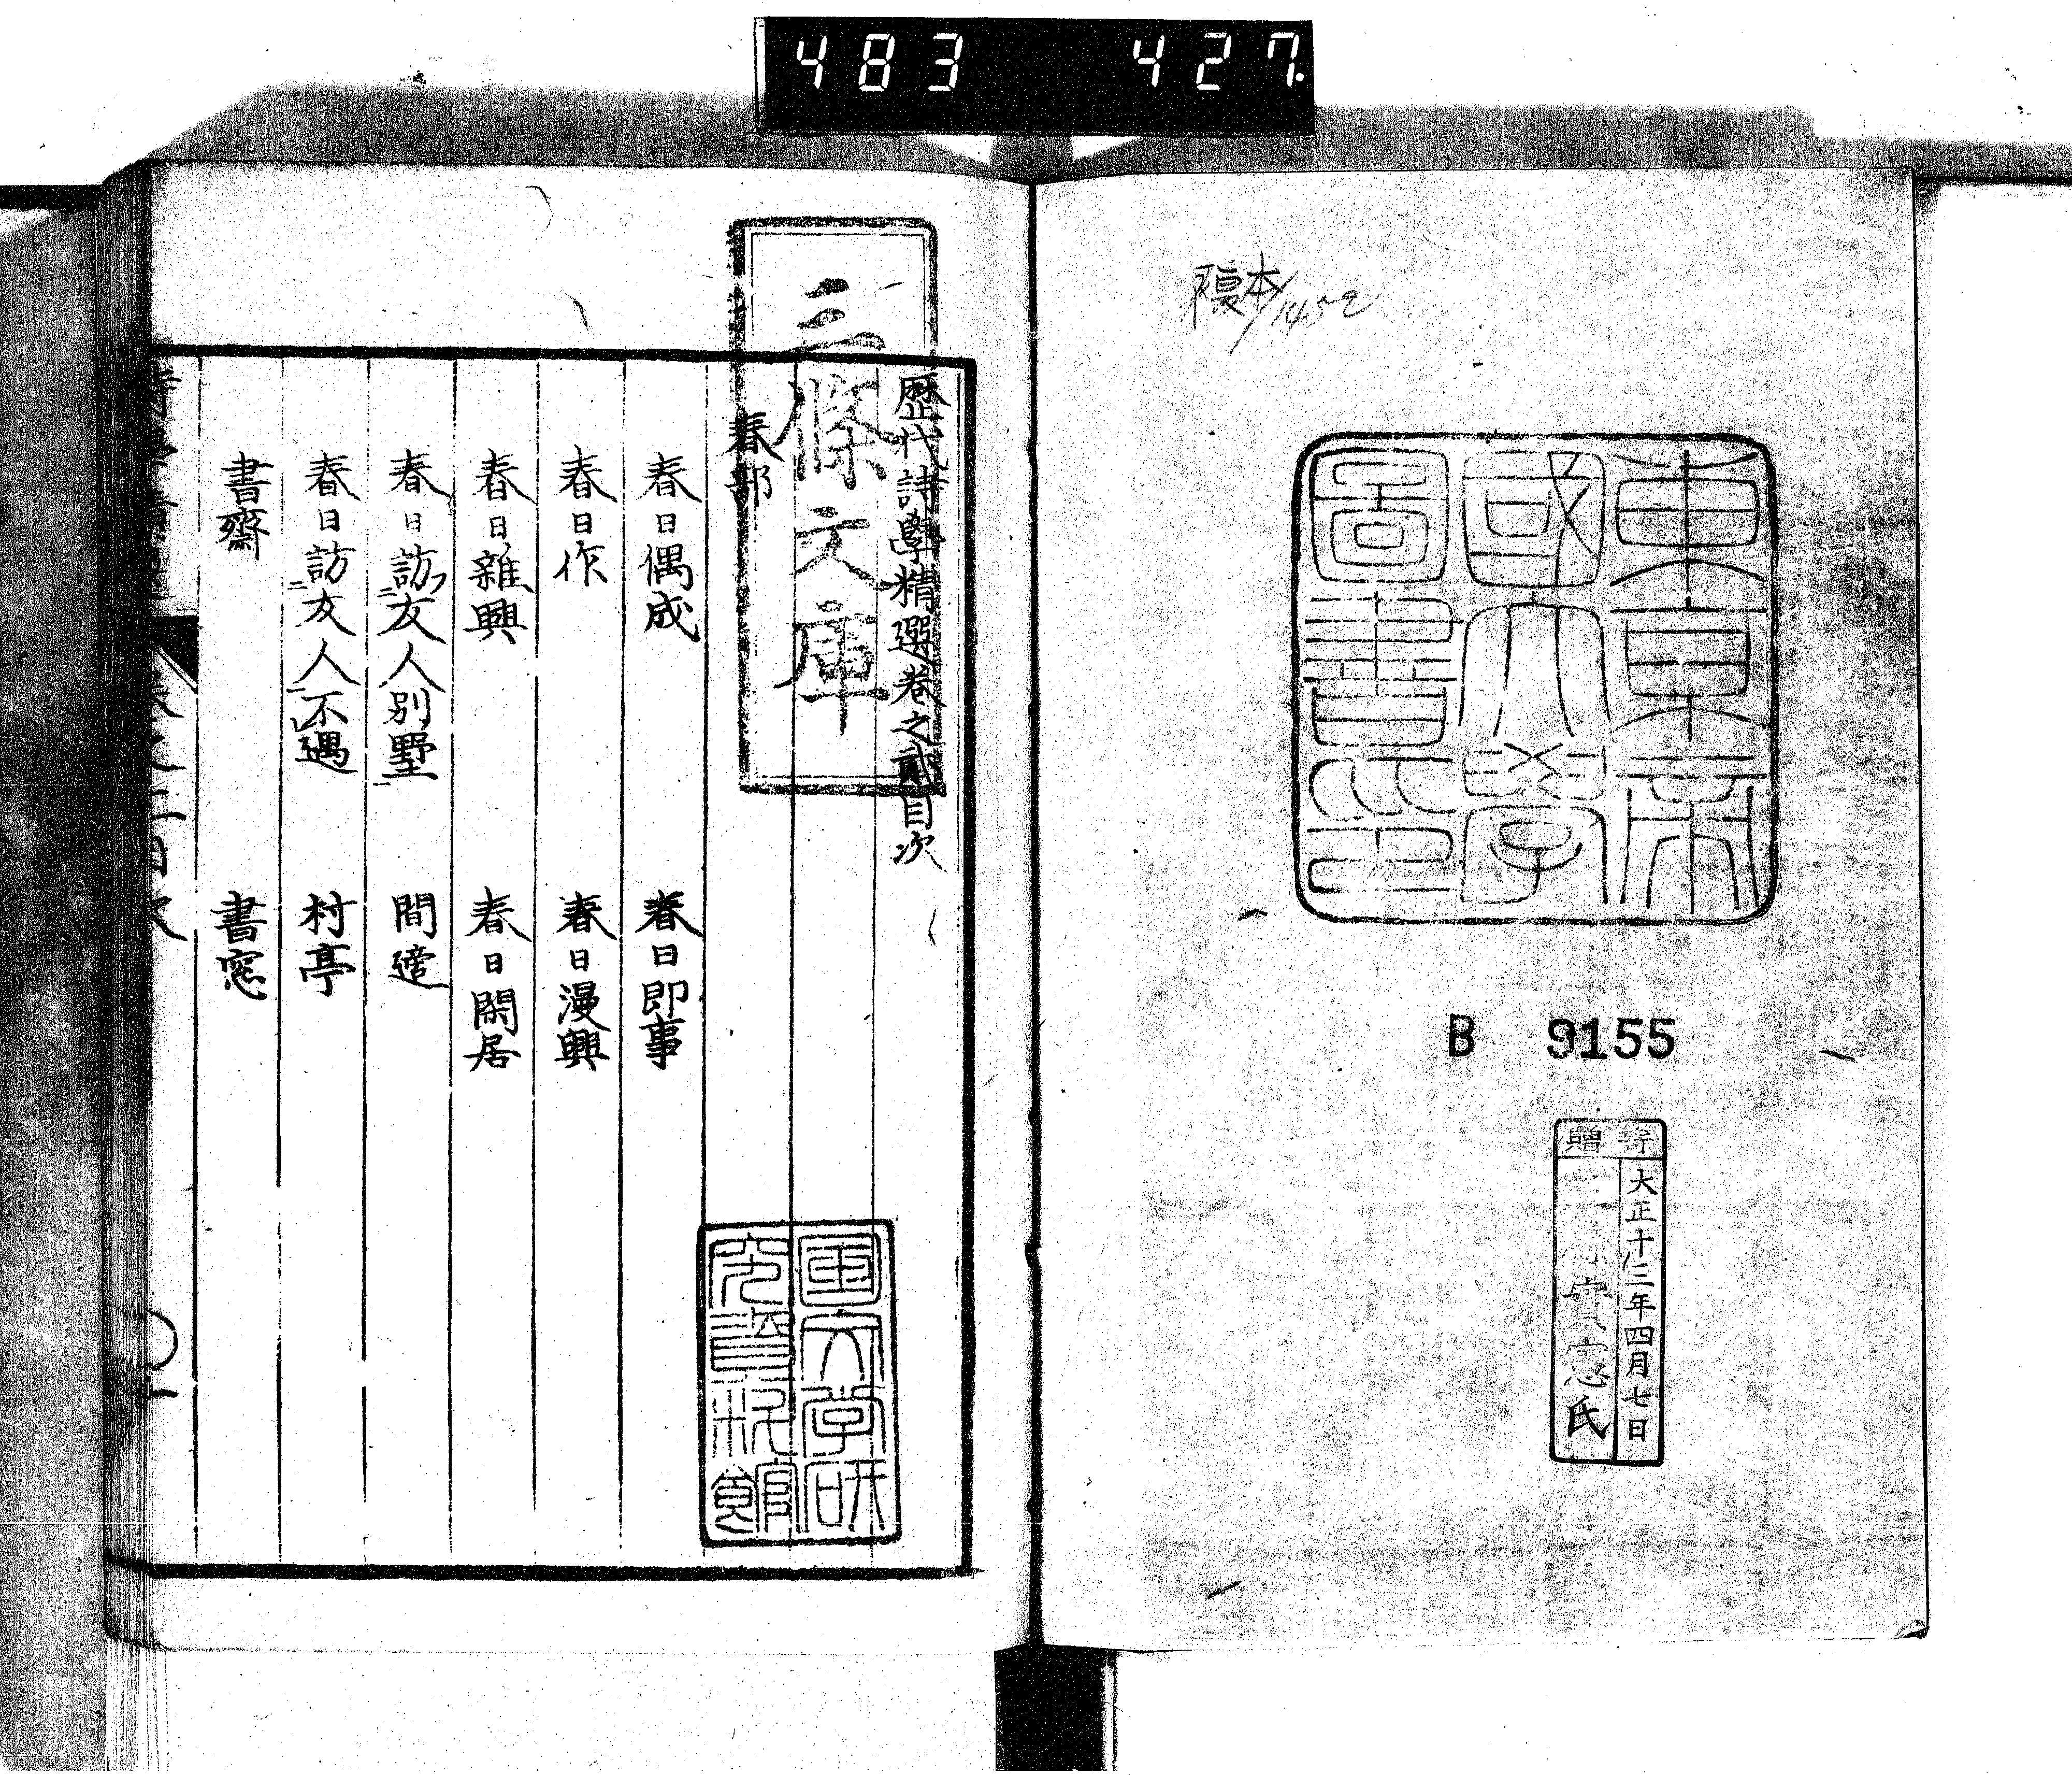 483 427.
複本/1452
東京帝
國大學
圖書印
B 9155
寄贈
大正十二年四月七日
實憲氏
三條文庫
歴代詩學精選巻之貳目次
春部
春日偶成 春日即事
春日作 春日漫興
春日雜興 春日閑居
春日訪友人別墅 間遊
春日訪友人不遇 村亭
書齋 書窓
国文学研
究資料館